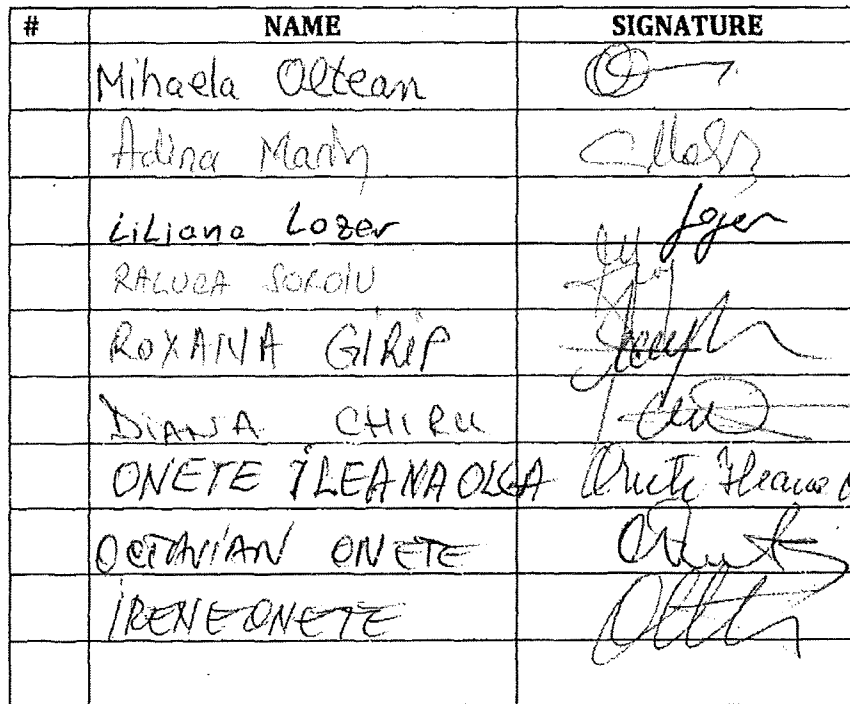 # NAME SIGNATURE
Mihaela Oltean
Adina Marin
Liliana Lozer
RALUCA SOROIU
ROXANA GIRIP
DIANA CHIRU
ONETE ILEANA OLGA Onete Ileana O
OCTAVIAN ONETE
IRENE ONETE